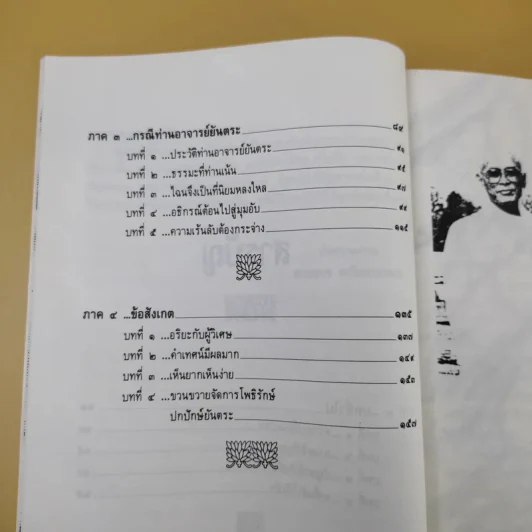 ภาค ๓ ...กรณีท่านอาจารย์ยันตระ ๘๙
บทที่ ๑ ...ประวัติท่านอาจารย์ยันตระ ๙๑
บทที่ ๒ ...ธรรมะที่ท่านเน้น ๙๕
บทที่ ๓ ...ไฉนจึงเป็นที่นิยมหลงใหล ๙๗
บทที่ ๔ ...อธิกรณ์ต้อนไปสู่มุมอับ ๙๙
บทที่ ๕ ...ความเร้นลับต้องกระจ่าง ๑๑๕
ภาค ๔ ...ข้อสังเกต ๑๓๕
บทที่ ๑ ...อริยะกับผู้วิเศษ ๑๓๗
บทที่ ๒ ...คำเทศน์มีผลมาก ๑๔๙
บทที่ ๓ ...เห็นยากเห็นง่าย ๑๕๓
บทที่ ๔ ...ขวนขวายจัดการโพธิรักษ์
ปกปักษ์ยันตระ ๑๕๗